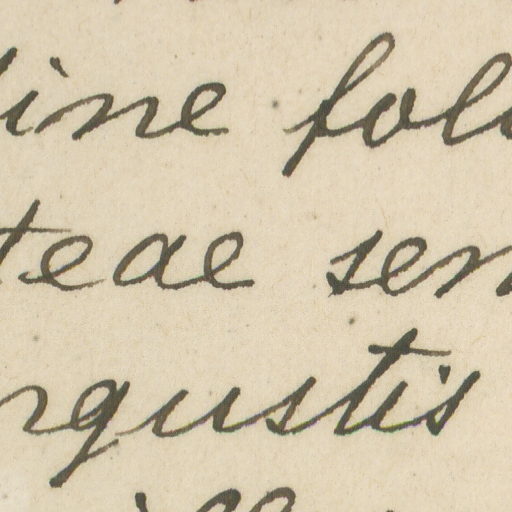 ine fol
teae sem
ngustis